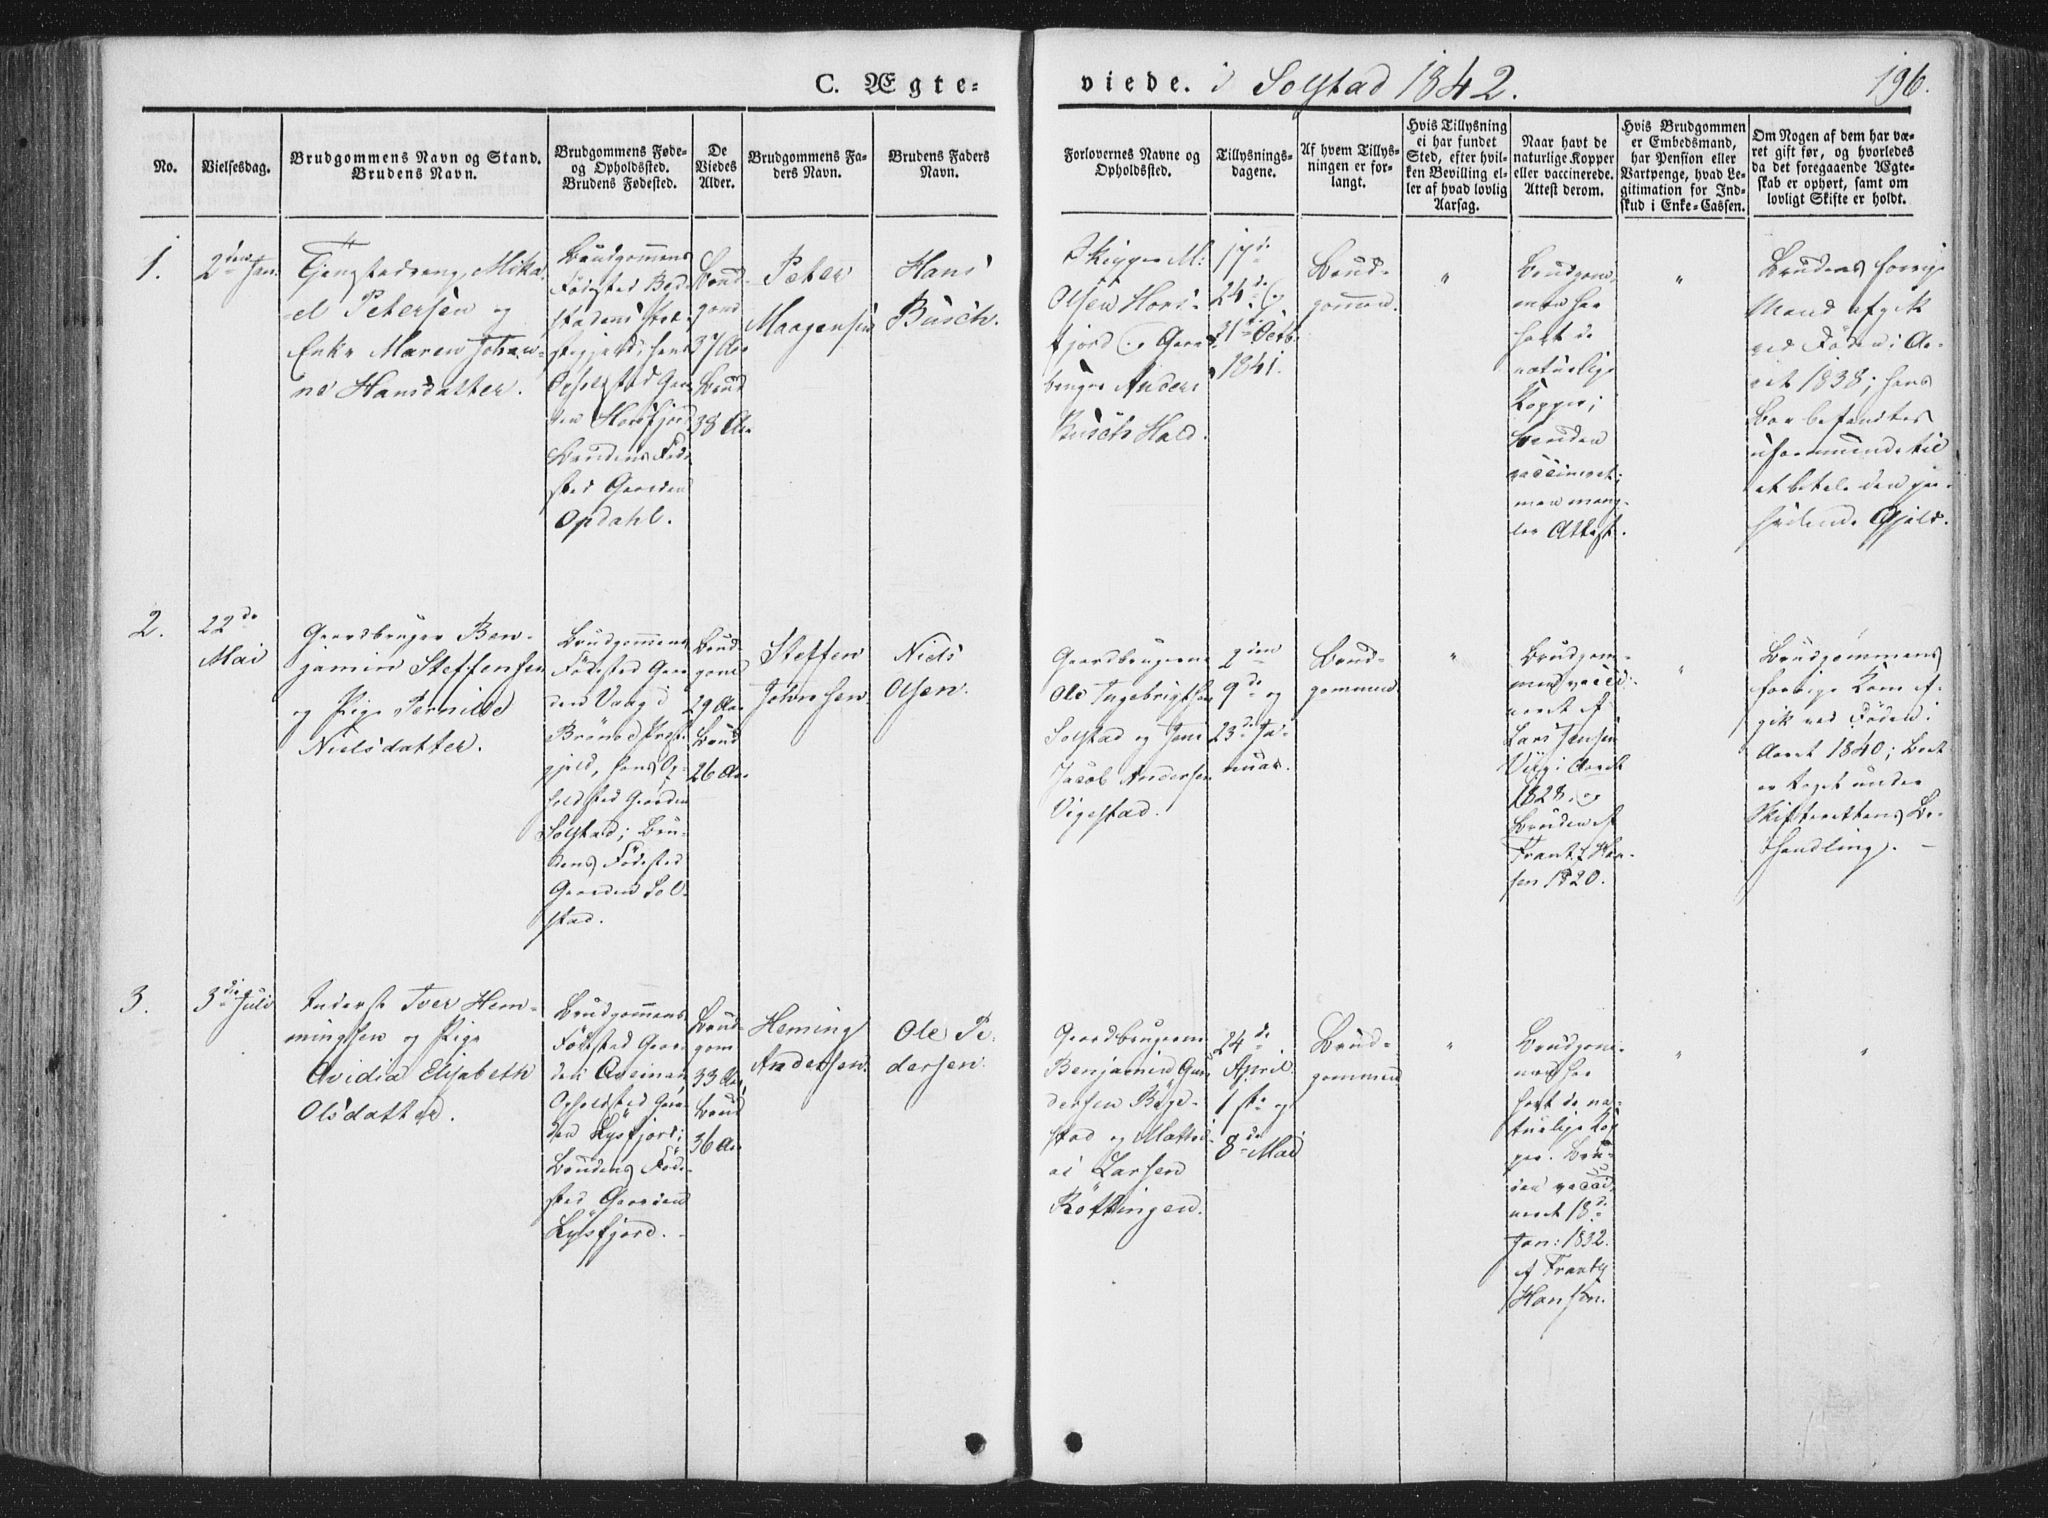 C. Ægte-
viede. i Solstad 1842.
196.
No.
Vielsesdag.
Brudgommens Navn og Stand.
Brudens Navn.
Brudgommens Føde-
og Opholdssted.
Brudens Fødested.
De
Viedes
Alder.
Brudgommens Fa-
ders Navn.
Brudens Faders
Navn.
Forlovernes Navne og
Opholdssted.
Tillysnings-
dagene.
Af hvem Tillys-
ningen er for-
langt.
Hvis Tillysning
ei har fundet
Sted, efter hvil-
ken Bevilling el-
ler af hvad lovlig
Aarsag.
Naar havt de
naturlige Kopper
eller vaccinerede.
Attest derom.
Hvis Brudgommen
er Embedsmand,
har Pension eller
Vartpenge, hvad Le-
gitimation for Ind-
skud i Enke-Cassen.
Om Nogen af dem har væ-
ret gift før, og hvorledes
da det foregaaende Ægte-
skab er ophørt, samt om
lovligt Skifte er holdt.
1.
2den Jan.
Mika-
el Petersen og
Enke Maren Johan-
ne Hansdatter.
Brudgommens
Fødested
Opholdssted Gaar-
den Horsfjord
Brudens Føde-
sted Gaarden
Opdahl.
Brud-
gom
37 Aar
Brud
38 Aar
Peter
Maagensen
Hans
Busch.
Skipper M:
Olsen Hors-
fjord og Gaard-
bruger Anders
Busch Hald.
17de
24de og
31te Octb.
1841.
Brud-
gommen.
"
Brudgom-
men har
havt de
naturlige
Kopper;
Bruden
vaccineret;
men mang-
ler Attest.
"
Brudens forrige
Mand afgik
ved Døden i Aa-
ret 1838; hans
Boe befandtes
uformuende til
at betale den
Gjeld.
2.
22de
Mai
Gaardbruger Ben-
jamin Steffensen
og Pige Pernille
Nielsdatter.
Brudgommens
Fødested Gaar-
den
Brönöe Præst-
gjeld, hans Op-
holdsted Gaarden
Solstad; Bru-
dens Födested
Gaarden Sol-
stad.
Brud-
gom
29 Aar
Brud
26 Aar
Steffen
Johnsen
Niels
Olsen.
Gaardbrugerne
Ole Ingebrigtsen
Solstad og Jens
Jacob Andersen
Vigestad.
2den
9de og
23de Ja-
nuar.
Brud-
gommen
"
Brudgom-
men vacci-
neret af
Lars Jensen
Viig i Aaret
1828, og
Bruden af
Frantz Han-
sen 1820.
"
Brudgommens
forrige Kone af-
gik ved Döden i
Aaret 1840; Boet
er taget under
Skifterettens Be-
handling. –
3.
3die Juli
Inderst Iver Hem-
mingsen og Pige
Avidia Elisabeth
Olsdatter.
Brudgommens
Födested Gaar-
den
Opholdsted Gaar-
den Lysfjord;
Brudens Föde-
sted Gaarden
Lysfjord.
Brud-
gom
33 Aar
Brud
36 Aar
Heming
Andersen.
Ole Pe-
dersen.
Gaardbrugerne
Benjamin Gun-
dersen Böge-
stad og Mathi-
as Larsen
Röttingen.
24de
April
1ste og
8de Mai
Brud-
gommen
"
Brudgom-
men har
havt de na-
turlige Kop-
per. Bru-
den vacci-
neret 18de
Jan: 1832.
af Frantz
Hansen.
"
"